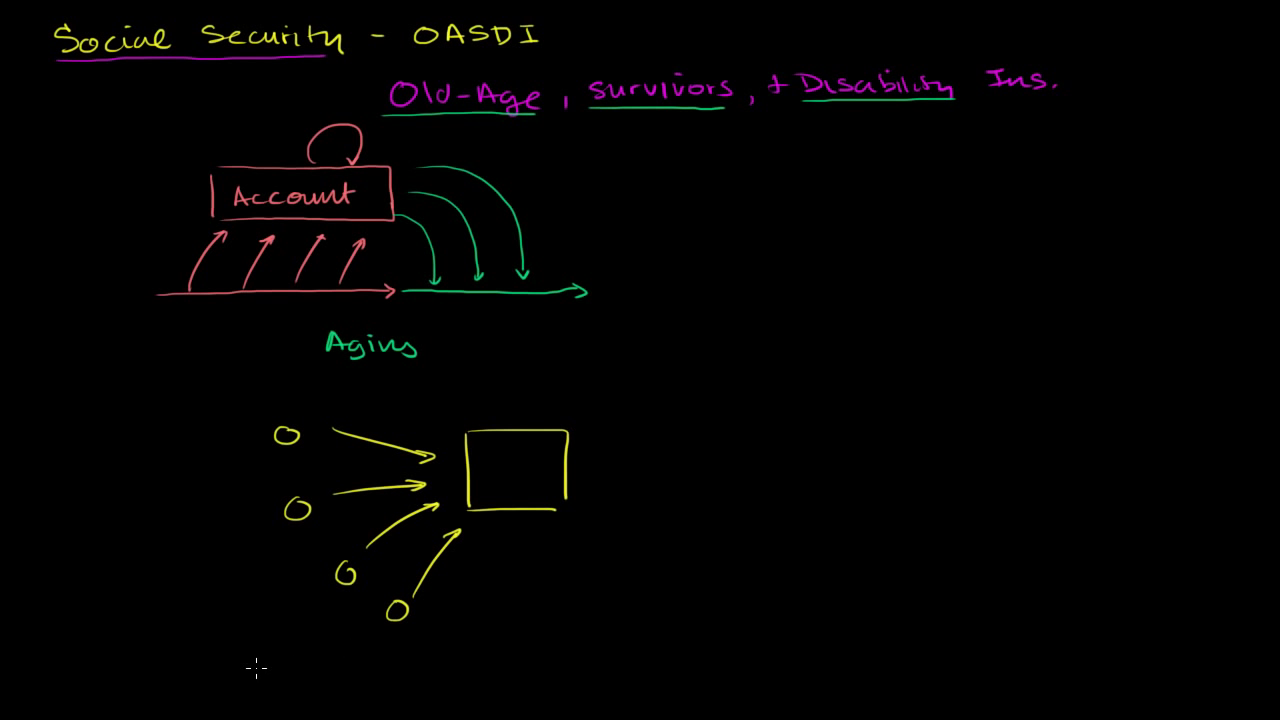 Social Security - OASDI
Old-Age, survivors, + Disability Ins.
Account
Aging